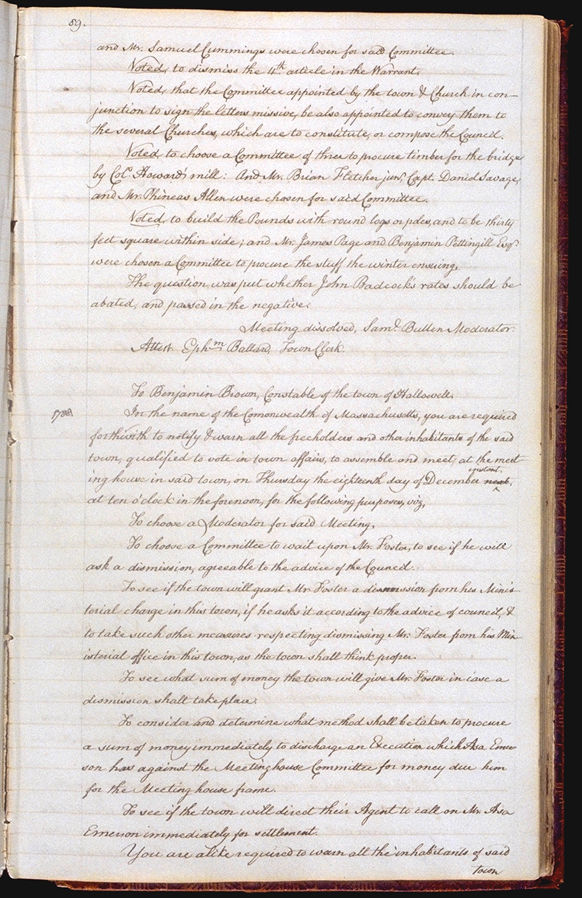 89.
and Mr. Samuel Cummings were chosen for said Committee.
Voted, to dismiss the 11th article in the Warrant.
Voted, that the Committee appointed by the town & Church in con-
junction to sign the letters missive, be also appointed to convey them to
the several Churches, which are to constitute, or compose the Council.
Voted, to choose a Committee of three to procure timber for the bridge
by Col. Howard's mill: And Mr. Brian Fletcher junr. Capt. Daniel Savage,
and Mr. Phineas Allen were chosen for said Committee.
Voted, to build the Pounds with round logs or poles, and to be thirty
feet square within side; and Mr. James Page and Benjamin Pettingill Esqr.
were chosen a Committee to procure the stuff the winter ensuing.
The question was put whether John Badcock's rates should be
abated, and passed in the negative.
Meeting dissolved, Saml. Bullen Moderator.
Attest Ephm Ballard, Town Clerk.
To Benjamin Brown, Constable of the town of Hallowell.
1788
In the name of the Comonwealth of Massachusetts, you are required
forthwith to notify & warn all the freeholders and other inhabitants of the said
town, qualified to vote in town affairs, to assemble and meet, at the meet
ing house in said town, on Thursday the eighteenth day of December next instant,
at ten o'clock in the forenoon, for the following purposes, viz,
To choose a Moderator for said Meeting.
To choose a Committee to wait upon Mr. Foster, to see if he will
ask a dismission, agreeable to the advice of the Council.
To see if the town will grant Mr Foster a dismission from his Minis
terial charge in this town, if he asks it according to the advice of council, &
to take such other measures respecting dismissing Mr. Foster from his Min
isterial office in this town, as the town shall think proper.
To see what sum of money the town will give Mr. Foster in case a
dismission shall take place.
To consider and determine what method shall be taken to procure
a sum of money immediately to discharge an Execution which Asa Emer
son has against the Meeting house Committee for money due him
for the Meeting house frame.
To see if the town will direct their Agent to call on Mr. Asa
Emerson immediately for settlement.
You are alike required to warn all the inhabitants of said
town